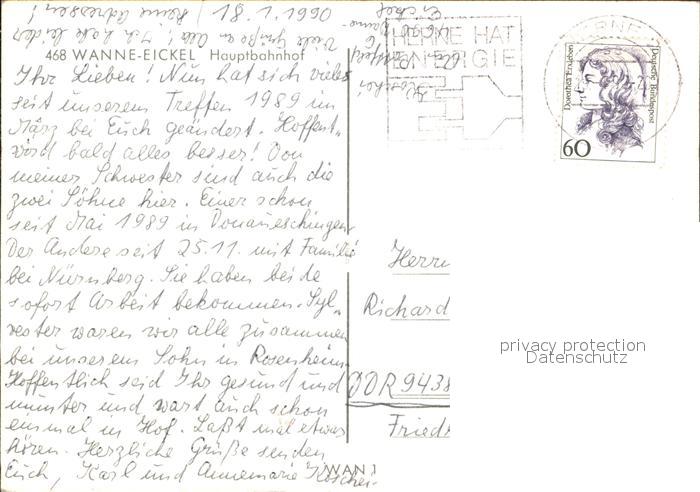 18.1.1990
468 WANNE-EICKEL Hauptbahnhof
Ihr Lieben! Nun hat sich vieles
seit unserem Treffen 1989 im
März bei Euch geändert. Hoffent-
wird bald alles besser! Von
meiner Schwester sind auch die
zwei Söhne hier. Einer schon
seit Mai 1989 in Donaueschingen
Der Andere seit 25.11. mit Familie
bei Nürnberg. Sie haben beide
sofort Arbeit bekommen. Syl-
vester waren wir alle zusammen
bei unserem Sohn in Rosenheim.
Hoffentlich seid Ihr gesund und
munter und wart auch schon
einmal in Hof. Laßt mal etwas
hören. Herzliche Grüße senden
Euch, Karl und Annemarie
Viele Grüße an alle! Ich habe leider
keine Adressen!
HERNE HAT
ENERGIE
HERNE
Dorothea Erxleben
Deutsche Bundespost
60
Herrn
Richard
DDR 9438
Friedr
WAN 1
privacy protection
Datenschutz